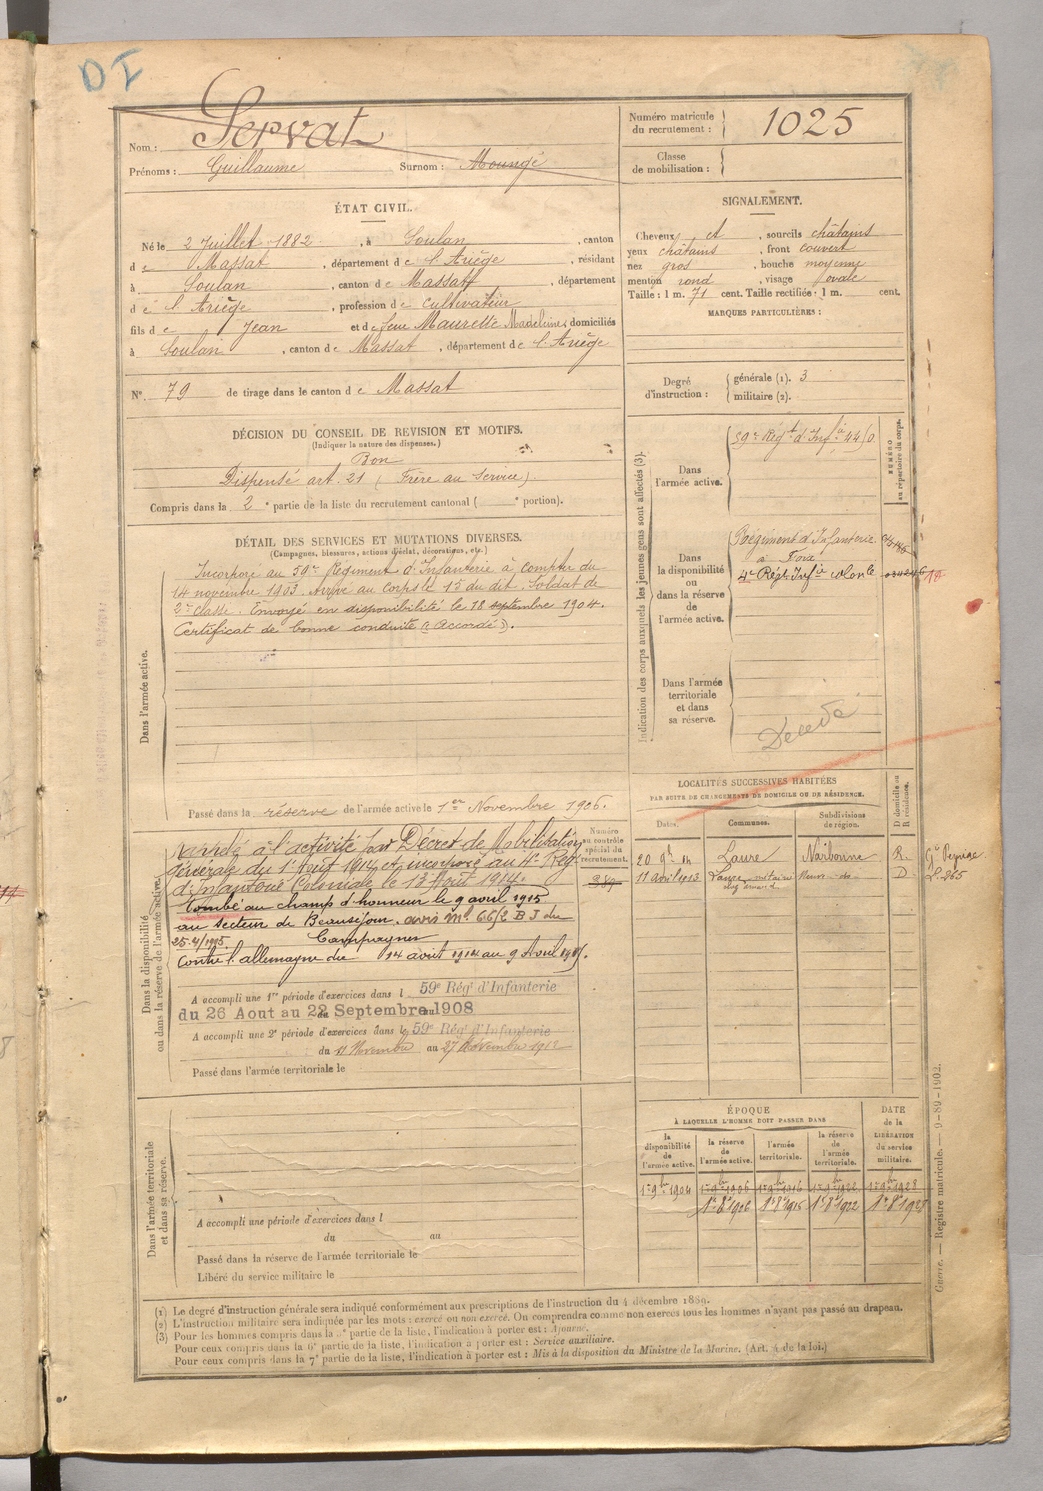 D I
Nom : Servat
Prénoms : Guillaume Surnom : Moungé
Numéro matricule du recrutement : 1025
Classe de mobilisation :
ÉTAT CIVIL.
Né le 2 Juillet 1882, à Soulan, canton
de Massat, département de l'Ariège, résidant
à Soulan, canton de Massat, département
de l'Ariège, profession de cultivateur
fils de Jean et de feue Maurette Madeleine domiciliés
à Soulan, canton de Massat, département de l'Ariège
N° 79 de tirage dans le canton de Massat
SIGNALEMENT.
Cheveux et, sourcils châtains
yeux châtains, front couvert
nez gros, bouche moyenne
menton rond, visage ovale
Taille : 1 m. 71 cent. Taille rectifiée : 1 m. cent.
MARQUES PARTICULIÈRES :
Degré d'instruction : générale (1). 3
militaire (2).
DÉCISION DU CONSEIL DE REVISION ET MOTIFS.
(Indiquer la nature des dispenses.)
Bon
Dispensé art. 21 (Frère au Service).
Compris dans la 2e partie de la liste du recrutement cantonal ( e portion).
DÉTAIL DES SERVICES ET MUTATIONS DIVERSES.
(Campagnes, blessures, actions d'éclat, décorations, etc.)
Dans l'armée active.
Incorporé au 59e Régiment d'Infanterie à compter du
14 novembre 1903. Arrivé au corps le 15 du dit. Soldat de
2e classe. Envoyé en disponibilité le 18 septembre 1904.
Certificat de bonne conduite "Accordé".
Passé dans la réserve de l'armée active le 1er Novembre 1906.
Indication des corps auxquels les jeunes gens sont affectés (3).
NUMÉRO au répertoire du corps.
Dans l'armée active.
59e Régt d'Infie à 44/0
Dans la disponibilité ou dans la réserve de l'armée active.
Régiment d'Infanterie
à Foix
4e Régt Infie colonle 034246
Dans l'armée territoriale et dans sa réserve.
Décédé
Dans la disponibilité ou dans la réserve de l'armée active.
Numéro au contrôle spécial du recrutement.
Rappelé à l'activité par Décret de Mobilisation
Générale du 1er Août 1914 et incorporé au 4e Régt
d'Infanterie Coloniale le 13 Août 1914.
Tombé au champ d'honneur le 9 avril 1915
au secteur de Beauséjour. avis ml. 66/2 B J du
25-4/1915.
Campagnes
Contre l'allemagne du 14 août 1914 au 9 Avril 1915.
A accompli une 1re période d'exercices dans l 59e Régt d'Infanterie
du 26 Aout au 22 Septembre 1908
A accompli une 2e période d'exercices dans le 59e Régt d'Infanterie
du 11 Novembre au 27 Novembre 1912
Passé dans l'armée territoriale le
LOCALITÉS SUCCESSIVES HABITÉES
PAR SUITE DE CHANGEMENTS DE DOMICILE OU DE RÉSIDENCE.
Dates. Communes. Subdivisions de région. D domicile ou R résidence.
20 9bre 11 Laure Narbonne R.
11 avril 1913 Laure
D.
L. 265
ÉPOQUE
À LAQUELLE L'HOMME DOIT PASSER DANS
DATE de la LIBÉRATION du service militaire.
la disponibilité de l'armée active. la réserve de l'armée active. l'armée territoriale. la réserve de l'armée territoriale.
1er 9bre 1904 1er 9bre 1906 1er 9bre 1916 1er 9bre 1922 1er 9bre 1928
1er 8bre 1906 1er 8bre 1916 1er 8bre 1922 1er 8bre 1928
Dans l'armée territoriale et dans sa réserve.
A accompli une période d'exercices dans l
du au
Passé dans la réserve de l'armée territoriale le
Libéré du service militaire le
Guerre. — Registre matricule. — 9-89-1902.
(1) Le degré d'instruction générale sera indiqué conformément aux prescriptions de l'instruction du 4 décembre 1889.
(2) L'instruction militaire sera indiquée par les mots : exercé ou non exercé. On comprendra comme non exercés tous les hommes n'ayant pas passé au drapeau.
(3) Pour les hommes compris dans la 5e partie de la liste, l'indication à porter est : Ajourné.
Pour ceux compris dans la 6e partie de la liste, l'indication à porter est : Service auxiliaire.
Pour ceux compris dans la 7e partie de la liste, l'indication à porter est : Mis à la disposition du Ministre de la Marine. (Art. 4 de la loi.)